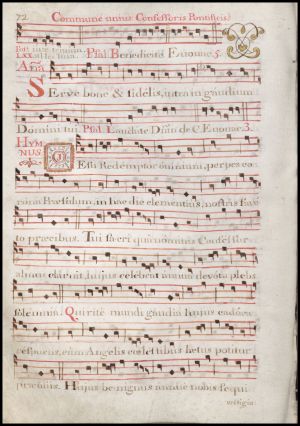 72. Commune unius Confessoris Pontificis
Psal. Benedicta Euouae. 5.
Aña
Serve bone & fidelis, intra in gaudium
Domini tui. Psal. Laudate Dñm de C. Euouae. 3.
HYMNUS
Jesu Redemptor omnium, perpes co
rona Præsulum, in hac die clementius, nostris fave
to precibus. Tui sacri quo nominis Confessor
almus claruit, hujus celebrat annua devota plebs
solemnia. Qui rite mundi gaudia hujus caduca
respuens, cum Angelis cœlestibus lætus potitur
præmiis. Hujus benignus annue nobis sequi
vestigia